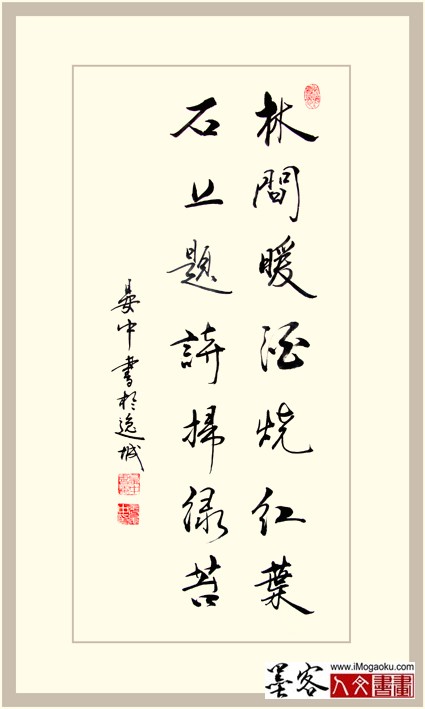 林間暖酒燒紅葉
石上題詩掃綠苔
晏中書於逸城
墨客
www.iMogaoku.com
人文書畫